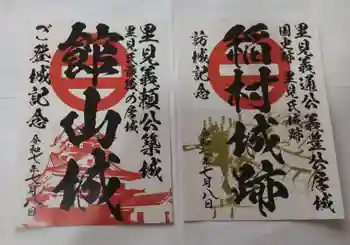 里見義頼公築城
里見氏最後の居城
館山城
ご登城記念
令和七年七月八日
里見義通公義豊公居城
国史跡 里見氏城跡
稲村城跡
訪城記念
令和七年七月八日